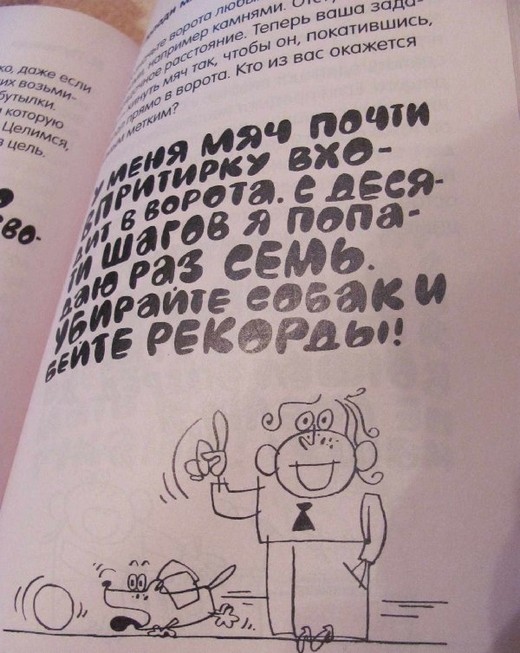 ко, даже если
их возьми-
бутылки,
которую
Целимся,
цель.
о
во-
ворота люб
например камнями. Отс
ное расстояние. Теперь ваша зада-
кинуть мяч так, чтобы он, покатившись,
прямо в ворота. Кто из вас окажется
метким?
У МЕНЯ МЯЧ ПОЧТИ
ВПРИТИРКУ ВХО-
ДИТ В ВОРОТА. С ДЕСЯ-
ТИ ШАГОВ Я ПОПА-
ДАЮ РАЗ СЕМЬ.
УБИРАЙТЕ СОБАК И
БЕЙТЕ РЕКОРДЫ!